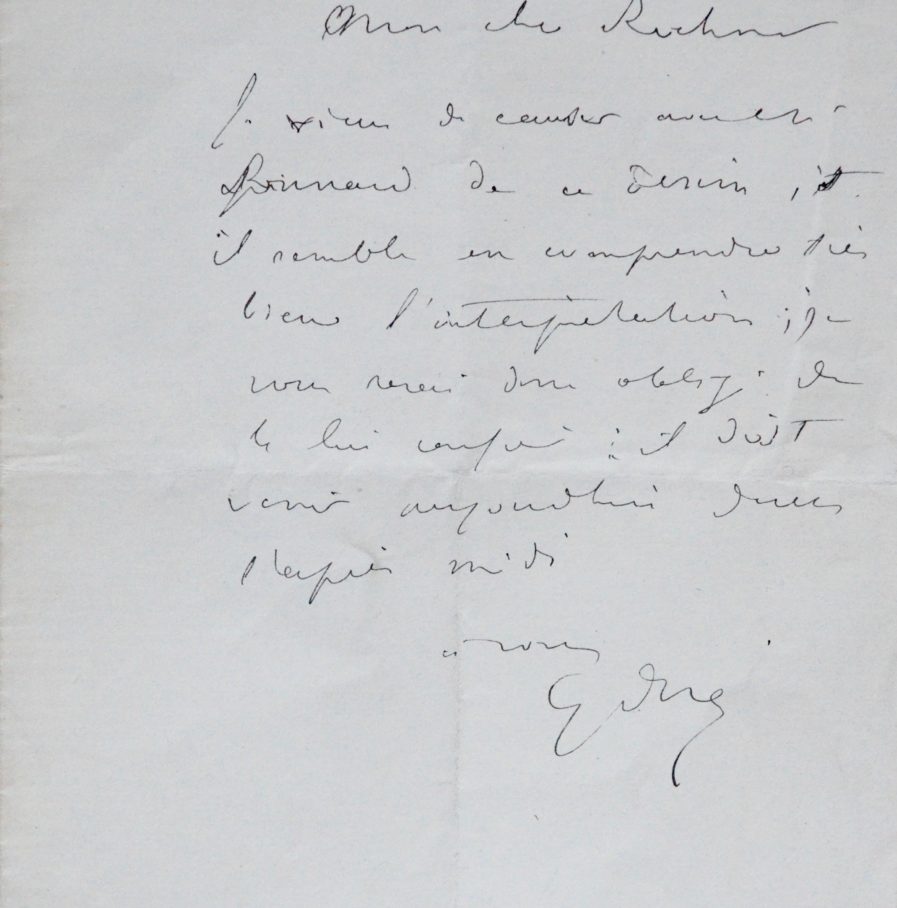 Mon cher
Je viens de causer avec
de ce dessin, et
il semble en comprendre très
bien l'interprétation ; je
vous serais donc obligé de
le lui confier : il doit
venir aujourd'hui dans
l'après midi
à vous
G Doré